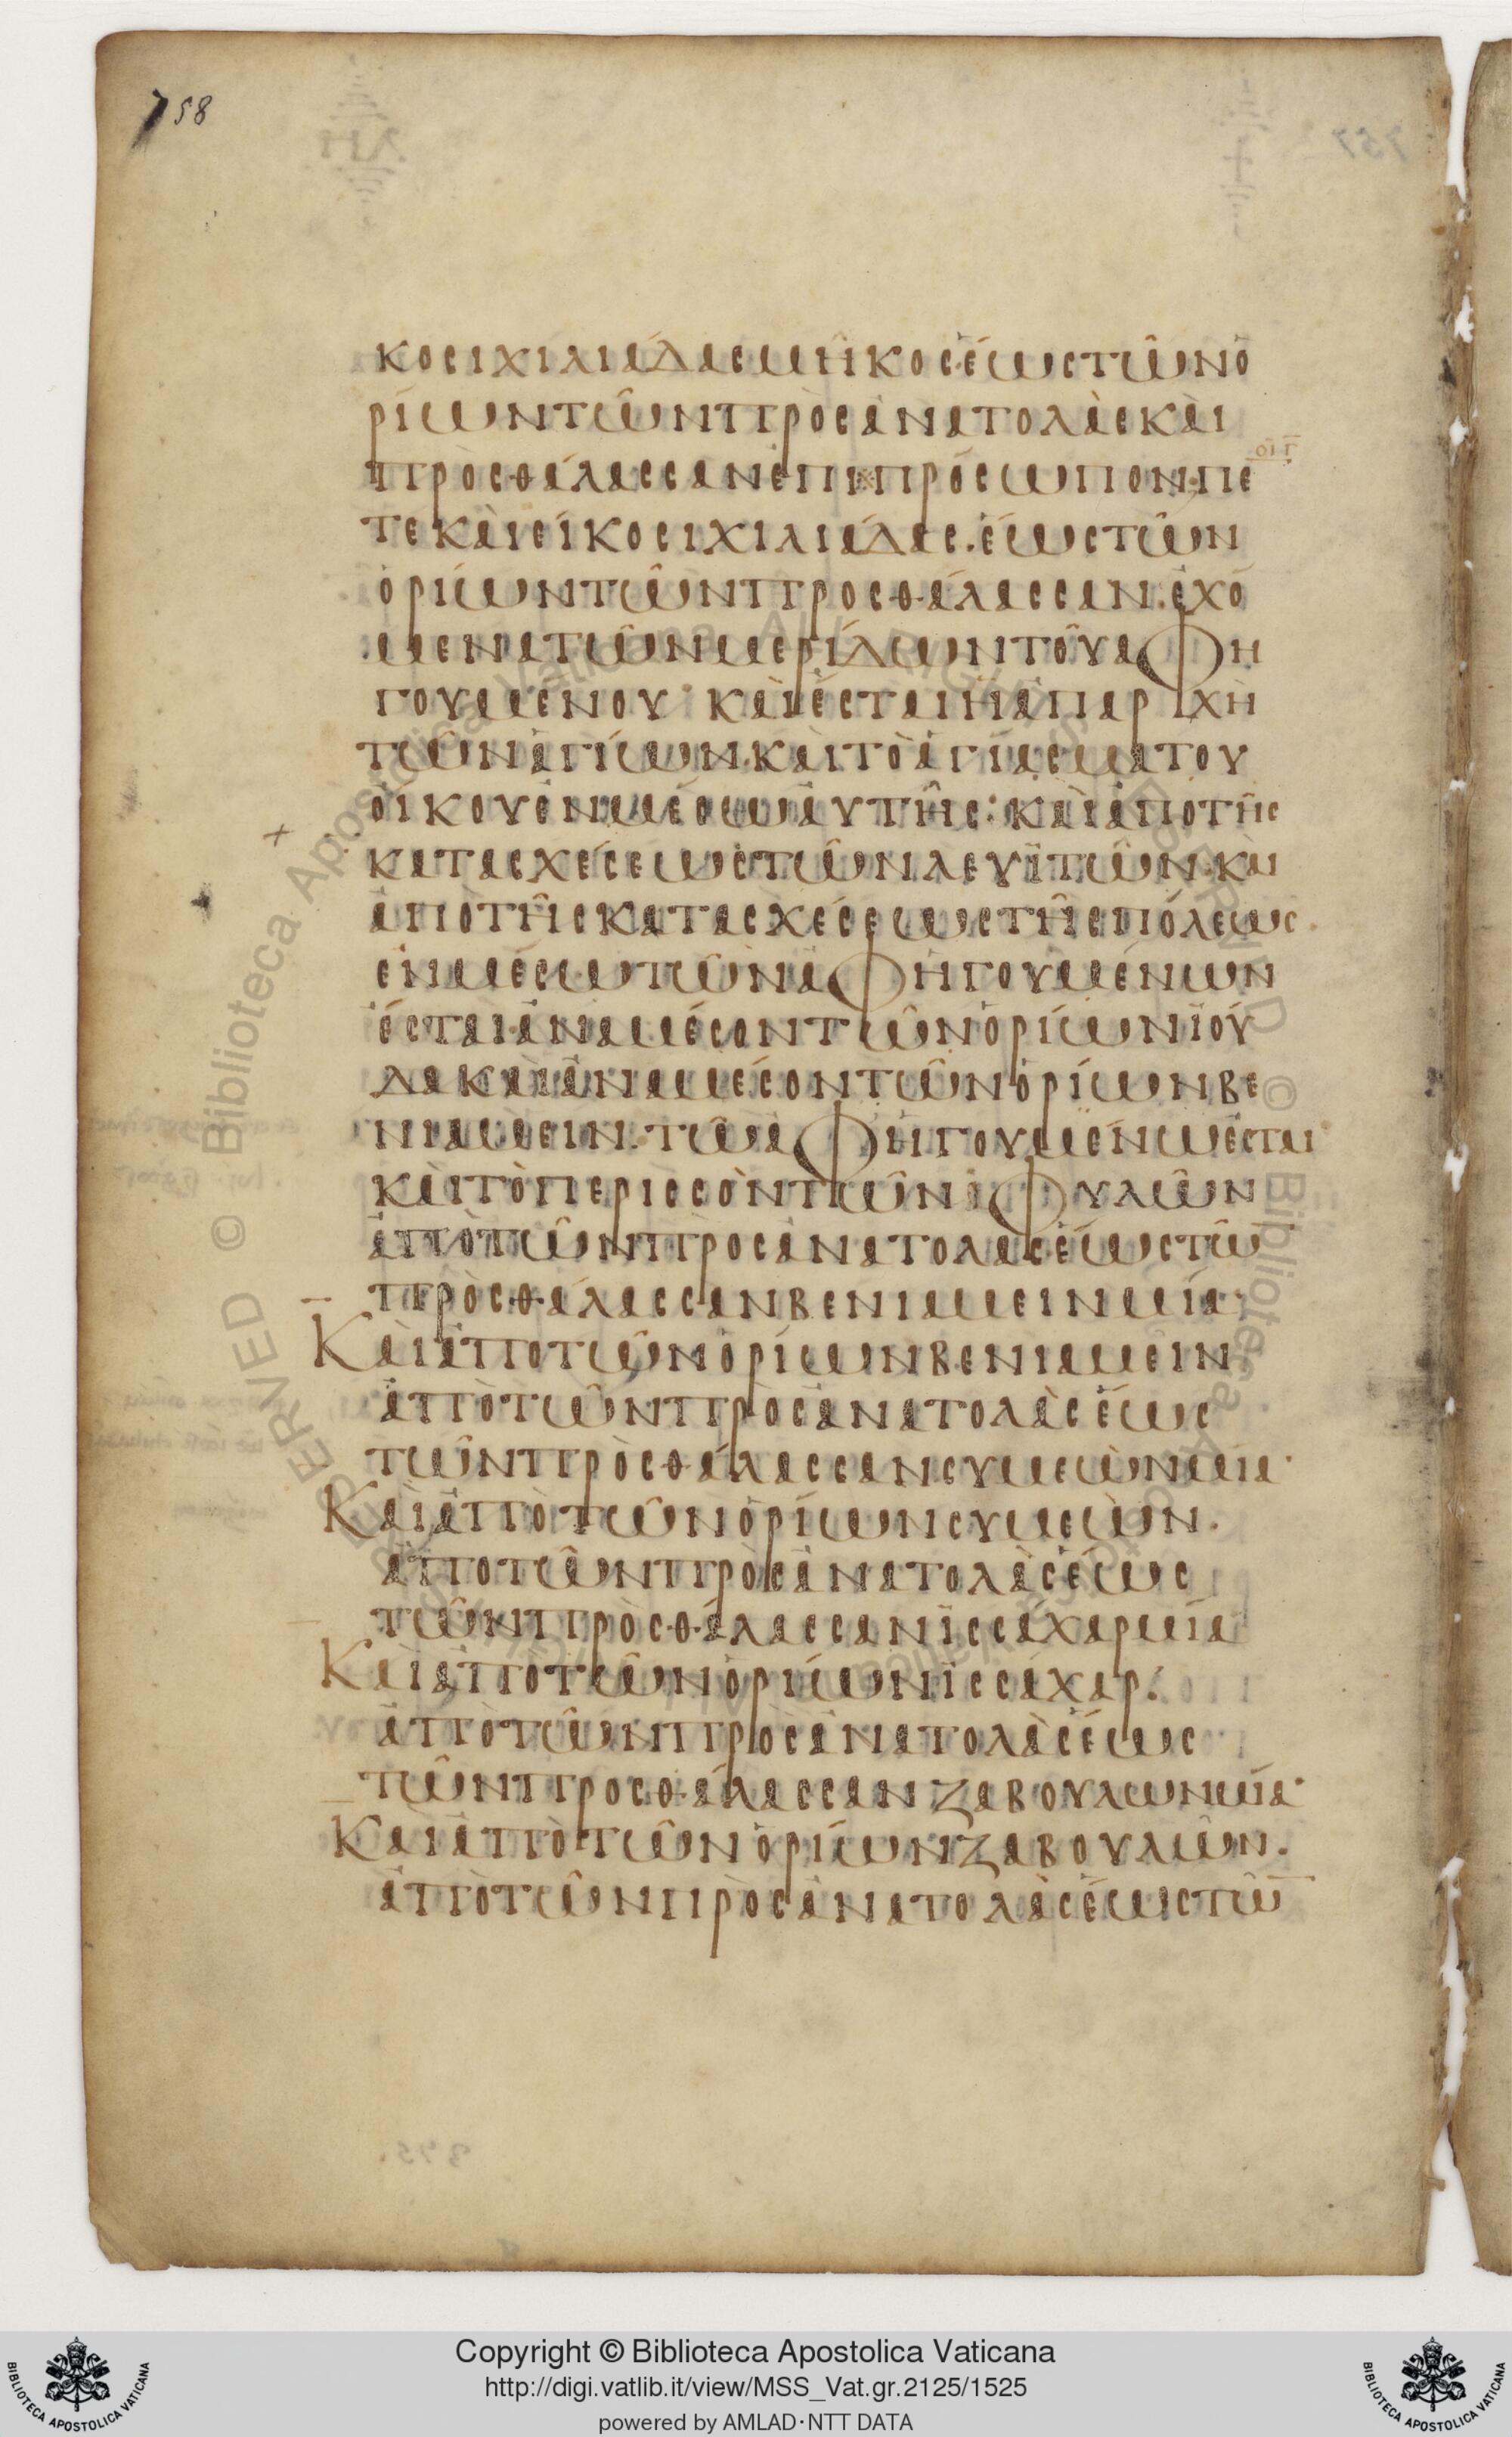 758
κοσιχιλιάδασμῆκοσἑέωστῶνὁ
ρίωντῶνπρὸσἀνατολὰσκαὶ
πρὸσθάλασσανἐπι※πρόσωπον·πε
το̅
τεκαὶεἴκοσιχιλιάδασ.ἕωστῶν
ὁρίωντῶνπροσθάλασσαν.ἐχό
μενατῶνμερίδωντοῦαφη
γουμένου· καὶέσταιἡἀπαρχὴ
τῶνἁγίων.καὶτὸἁγίασματου
οίκουἐνμέσωαυτῆσ: καὶαποτῆσ
κατασχέσεωστῶνλευϊτῶν.καὶ
ἀπὸτῆσκατασχέσεωστῆσπόλεωσ.
ενμέσωτῶνἀφηγουμένων
έσταιἀναμέσοντῶνὁρίωνϊού
δακαιἀναμέσοντῶνὁρίωνβε
νιαμειν.τῶναφηγουμένωνέσται
καὶτὸπερισσὸντῶνφυλῶν
ἀπὸτῶνπροσἀνατολασἕωστῶ̅
πρὸσθάλασσανβενιαμεινμία·
Καὶἀποτῶνὁρίωνβενιαμεὶν.
ἀπὸτῶνπρὸσἀνατολὰσἕωσ
τῶνπρὸσθάλασσανσυμεὼνμία·
Καὶἀπὸτῶνὁρίωνσυμεὼν.
ἀποτῶνπρὸσἀνατολὰσἕωσ
τῶνπρὸσθάλασσανϊσσάχαρμία
Καὶἀπὸτῶνὁρίωνϊσσάχαρ.
ἀπὸτῶνπρὸσἀνατολὰσἕωσ
τῶνπροσθάλασσανζαβουλωνμία·
Καὶἀπὸτῶνὁρίωνζαβουλών.
ἀπὸτῶνπρὸσἀνατολὰσἕωστῶ̅
Copyright © Biblioteca Apostolica Vaticana
http://digi.vatlib.it/view/MSS_Vat.gr.2125/1525
powered by AMLAD·NTT DATA
BIBLIOTECA APOSTOLICA VATICANA
BIBLIOTECA APOSTOLICA VATICANA